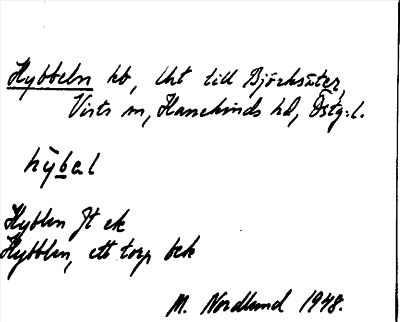 Hybbeln hb, Uht till Björksäter,
Vists sn, Hanekinds hd, Östg.l.
hỳbal
Hyblen Jt ek
Hybblen, ett torp bek
M. Nordlund 1948.